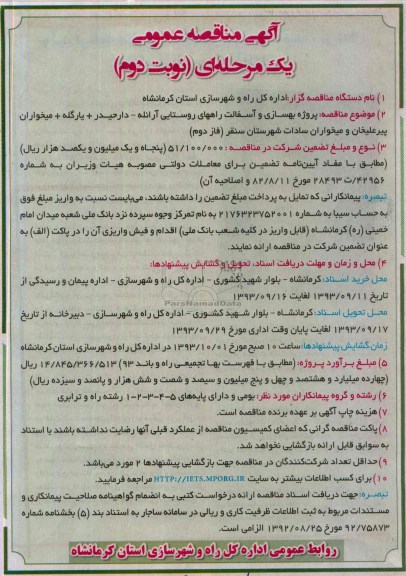 آگهی مناقصه عمومی
یک مرحله‌ای (نوبت دوم)
۱) نام دستگاه مناقصه گزار: اداره کل راه و شهرسازی استان کرمانشاه
۲) موضوع مناقصه: پروژه بهسازی و آسفالت راههای روستایی آرائله - دارحیدر + یارگله + میخواران
پیرعلیخان و میخواران سادات شهرستان سنقر (فاز دوم)
۳) نوع و مبلغ تضمین شرکت در مناقصه: ۵۱/۱۰۰/۰۰۰ (پنجاه و یک میلیون و یکصد هزار ریال)
(مطابق با مفاد آیین‌نامه تضمین برای معاملات دولتی مصوبه هیات وزیران به شماره
۴۲۹۵۶/ت ۲۸۴۹۳ مورخ ۸۲/۸/۱۱ و اصلاحیه آن)
تبصره: پیمانکارانی که تمایل به پرداخت مبلغ تضمین را داشته باشند، می‌بایست نسبت به واریز مبلغ فوق
به حساب سیبا به شماره ۲۱۷۶۴۲۳۷۵۲۰۰۱ به نام تمرکز وجوه سپرده نزد بانک ملی شعبه میدان امام
خمینی (ره) کرمانشاه (قابل واریز در کلیه شعب بانک ملی) اقدام و فیش واریزی آن را در پاکت (الف) به
عنوان تضمین شرکت در مناقصه ارائه نمایند.
۴) محل و زمان و مهلت دریافت اسناد، تحویل و گشایش پیشنهادها:
محل خرید اسناد: کرمانشاه - بلوار شهید کشوری - اداره کل راه و شهرسازی - اداره پیمان و رسیدگی از
تاریخ ۱۳۹۳/۰۹/۱۱ لغایت ۱۳۹۳/۰۹/۱۶
ParsNamadData
محل تحویل اسناد: کرمانشاه - بلوار شهید کشوری - اداره کل راه و شهرسازی - دبیرخانه از تاریخ
۱۳۹۳/۰۹/۱۷ لغایت پایان وقت اداری مورخ ۱۳۹۳/۰۹/۲۹
زمان گشایش پیشنهادها: ساعت ۱۰ صبح مورخ ۱۳۹۳/۱۰/۰۱ در اداره کل راه و شهرسازی استان کرمانشاه
۵) مبلغ برآورد پروژه: (مطابق با فهرست بها تجمیعی راه و باند ۹۳) ۱۴/۸۴۵/۳۶۶/۵۱۳ ریال
(چهارده میلیارد و هشتصد و چهل و پنج میلیون و سیصد و شصت و شش هزار و پانصد و سیزده ریال)
۶) رشته و گروه پیمانکاران مورد نظر: بومی و دارای پایه‌های ۵-۴-۳-۲-۱ رشته راه و ترابری
۷) هزینه چاپ آگهی بر عهده برنده مناقصه است.
۸) پاکت مناقصه گرانی که اعضای کمیسیون مناقصه از عملکرد قبلی آنها رضایت نداشته باشند با استناد
به سوابق قابل ارائه بازگشایی نخواهد شد.
۹) حداقل تعداد شرکت‌کنندگان در مناقصه جهت بازگشایی پیشنهادها ۲ مورد می‌باشد.
۱۰) برای کسب اطلاعات بیشتر به سایت HTTP://IETS.MPORG.IR مراجعه فرمایید.
تبصره: جهت دریافت اسناد مناقصه ارائه درخواست کتبی به انضمام گواهینامه صلاحیت پیمانکاری و
مستندات مربوط به ثبت اطلاعات ظرفیت کاری و ریالی در سامانه ساجار به استناد بند (۵) بخشنامه شماره
۹۲/۷۵۸۷۳ مورخ ۱۳۹۲/۰۸/۲۵ الزامی است.
روابط عمومی اداره کل راه و شهرسازی استان کرمانشاه